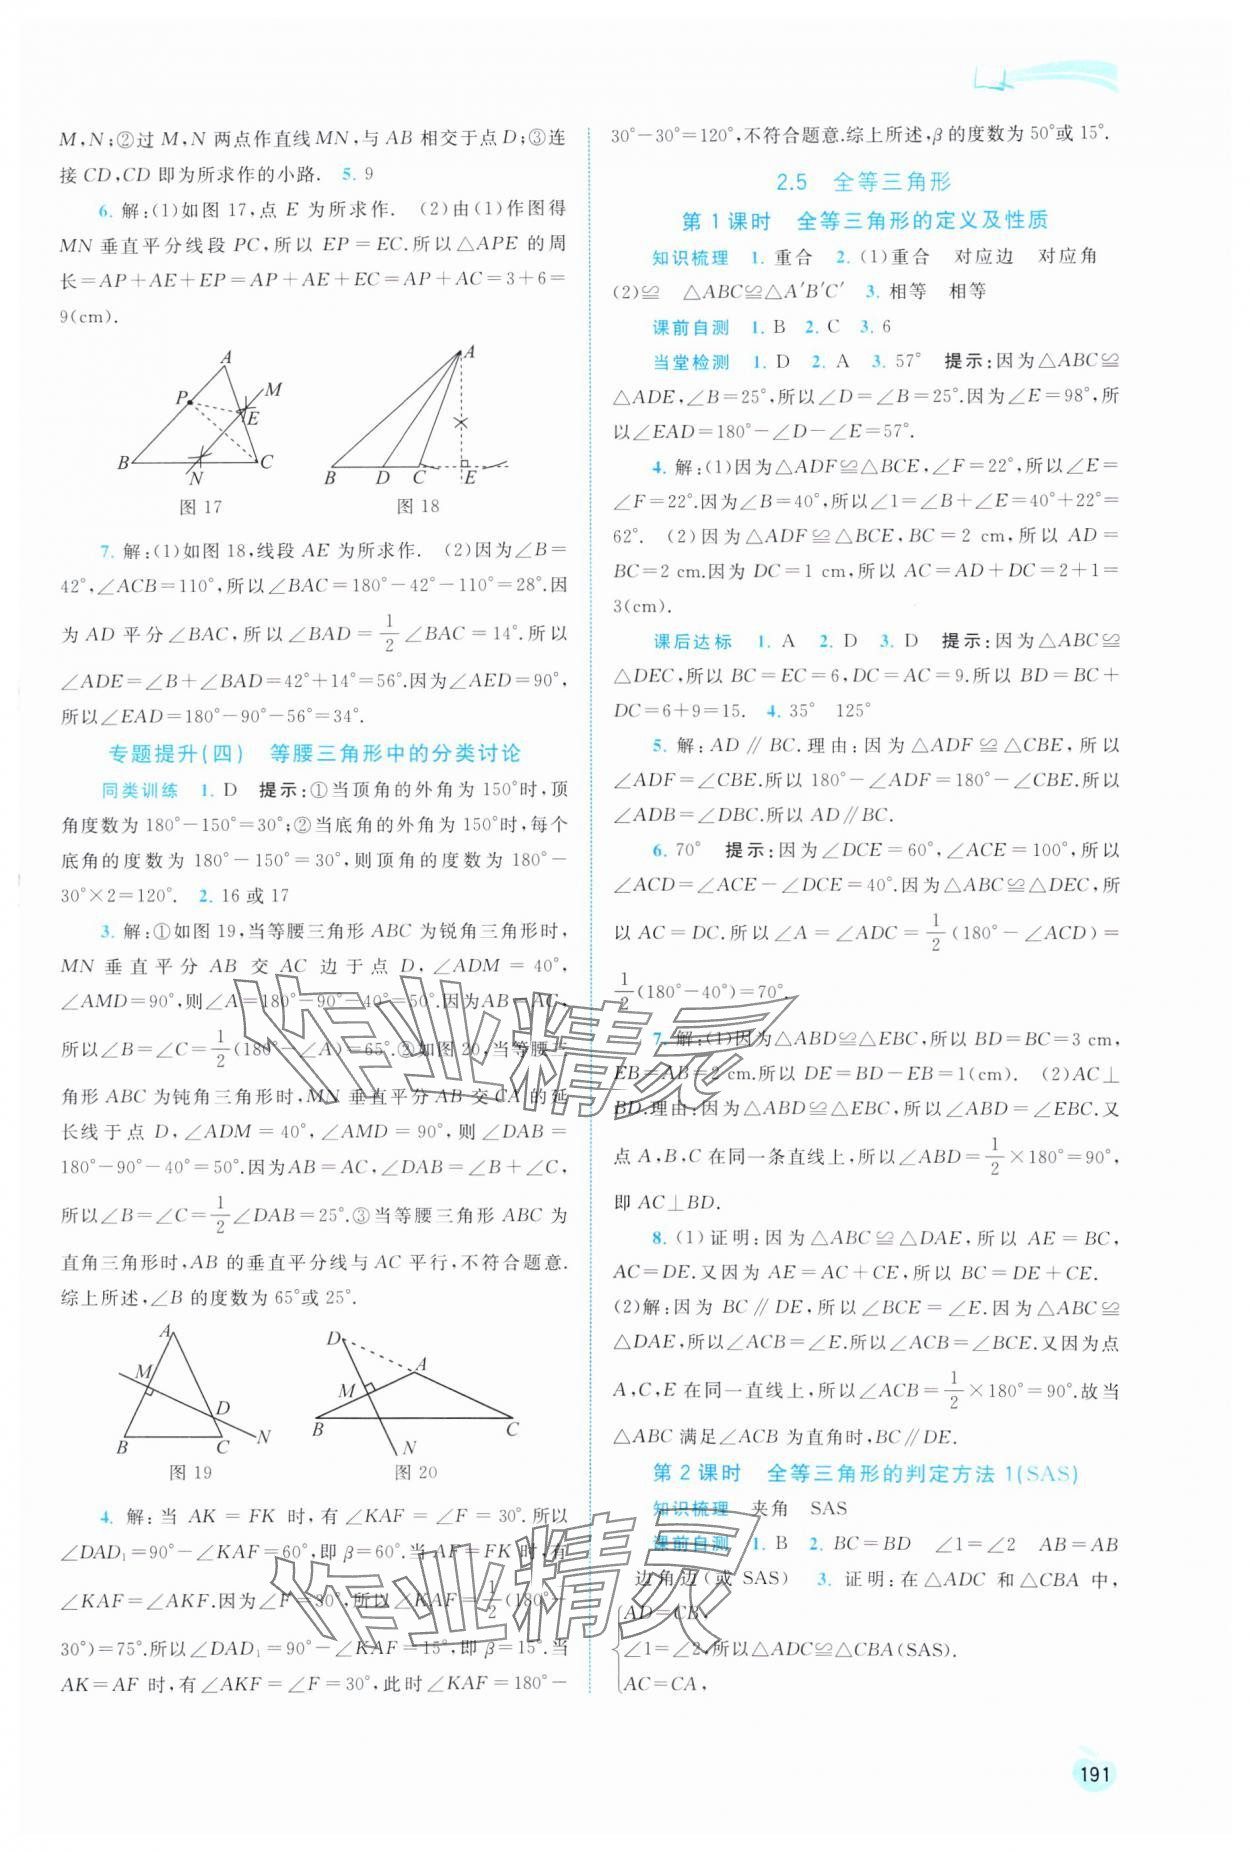 M,N;②过 M,N 两点作直线 MN,与 AB 相交于点 D;③连
接 CD,CD 即为所求作的小路. 5. 9
6. 解:(1)如图 17,点 E 为所求作. (2)由(1)作图得
MN 垂直平分线段 PC,所以 EP=EC.所以△APE 的周
长=AP+AE+EP=AP+AE+EC=AP+AC=3+6=
9(cm).
A
P
M
E
B
N
C
图 17
A
B
D
C
E
图 18
7. 解:(1)如图 18,线段 AE 为所求作. (2)因为∠B=
42°,∠ACB=110°,所以∠BAC=180°-42°-110°=28°.因
为 AD 平分∠BAC,所以∠BAD=1/2∠BAC=14°.所以
∠ADE=∠B+∠BAD=42°+14°=56°.因为∠AED=90°,
所以∠EAD=180°-90°-56°=34°.
专题提升(四) 等腰三角形中的分类讨论
同类训练 1. D 提示:①当顶角的外角为 150°时,顶
角度数为 180°-150°=30°;②当底角的外角为 150°时,每个
底角的度数为 180°-150°=30°,则顶角的度数为 180°-
30°×2=120°. 2. 16 或 17
3. 解:①如图 19,当等腰三角形 ABC 为锐角三角形时,
MN 垂直平分 AB 交 AC 边于点 D,∠ADM=40°,
∠AMD=90°,则∠A=180°-90°-40°=50°.因为AB=AC,
所以∠B=∠C=1/2(180°-∠A)=65°.②如图 20,当等腰三
角形 ABC 为钝角三角形时,MN 垂直平分 AB 交 CA 的延
长线于点 D,∠ADM=40°,∠AMD=90°,则∠DAB=
180°-90°-40°=50°.因为AB=AC,∠DAB=∠B+∠C,
所以∠B=∠C=1/2∠DAB=25°.③当等腰三角形 ABC 为
直角三角形时,AB 的垂直平分线与 AC 平行,不符合题意.
综上所述,∠B 的度数为 65°或 25°.
A
M
D
B
C
N
图 19
D
A
M
B
C
N
图 20
4. 解:当 AK=FK 时,有∠KAF=∠F=30°.所以
∠DAD₁=90°-∠KAF=60°,即 β=60°.当 AF=FK 时,有
∠KAF=∠AKF.因为∠F=30°,所以∠KAF=1/2(180°-
30°)=75°.所以∠DAD₁=90°-∠KAF=15°,即 β=15°.当
AK=AF 时,有∠AKF=∠F=30°,此时∠KAF=180°-
30°-30°=120°,不符合题意.综上所述,β 的度数为 50°或 15°.
2.5 全等三角形
第 1 课时 全等三角形的定义及性质
知识梳理 1. 重合 2. (1)重合 对应边 对应角
(2)≌ △ABC≌△A′B′C′ 3. 相等 相等
课前自测 1. B 2. C 3. 6
当堂检测 1. D 2. A 3. 57° 提示:因为△ABC≌
△ADE,∠B=25°,所以∠D=∠B=25°.因为∠E=98°,所
以∠EAD=180°-∠D-∠E=57°.
4. 解:(1)因为△ADF≌△BCE,∠F=22°,所以∠E=
∠F=22°.因为∠B=40°,所以∠1=∠B+∠E=40°+22°=
62°. (2)因为△ADF≌△BCE,BC=2 cm,所以 AD=
BC=2 cm.因为 DC=1 cm,所以 AC=AD+DC=2+1=
3(cm).
课后达标 1. A 2. D 3. D 提示:因为△ABC≌
△DEC,所以 BC=EC=6,DC=AC=9.所以 BD=BC+
DC=6+9=15. 4. 35° 125°
5. 解:AD∥BC.理由:因为△ADF≌△CBE,所以
∠ADF=∠CBE.所以 180°-∠ADF=180°-∠CBE.所以
∠ADB=∠DBC.所以 AD∥BC.
6. 70° 提示:因为∠DCE=60°,∠ACE=100°,所以
∠ACD=∠ACE-∠DCE=40°.因为△ABC≌△DEC,所
以 AC=DC.所以∠A=∠ADC=1/2(180°-∠ACD)=
1/2(180°-40°)=70°.
7. 解:(1)因为△ABD≌△EBC,所以 BD=BC=3 cm,
EB=AB=2 cm.所以 DE=BD-EB=1(cm). (2)AC⊥
BD.理由:因为△ABD≌△EBC,所以∠ABD=∠EBC.又
点 A,B,C 在同一条直线上,所以∠ABD=1/2×180°=90°,
即 AC⊥BD.
8. (1)证明:因为△ABC≌△DAE,所以 AE=BC,
AC=DE.又因为 AE=AC+CE,所以 BC=DE+CE.
(2)解:因为 BC∥DE,所以∠BCE=∠E.因为△ABC≌
△DAE,所以∠ACB=∠E.所以∠ACB=∠BCE.又因为点
A,C,E 在同一直线上,所以∠ACB=1/2×180°=90°.故当
△ABC 满足∠ACB 为直角时,BC∥DE.
第 2 课时 全等三角形的判定方法 1(SAS)
知识梳理 夹角 SAS
课前自测 1. B 2. BC=BD ∠1=∠2 AB=AB
边角边(或 SAS) 3. 证明:在△ADC 和△CBA 中,
AD=CB,
∠1=∠2,所以△ADC≌△CBA(SAS).
AC=CA,
191
作业精灵
作业精灵